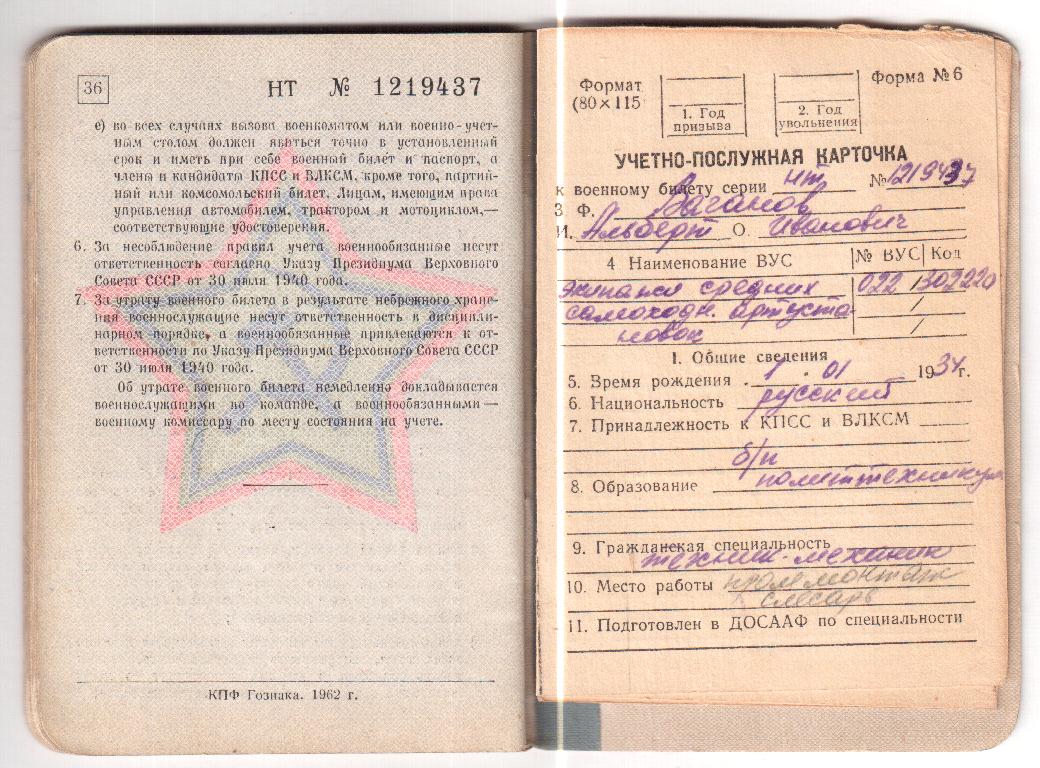 36
НТ № 1219437
е) во всех случаях вызова военкоматом или военно-учет-
ным столом должен явиться точно в установленный
срок и иметь при себе военный билет и паспорт, а
члены и кандидаты КПСС и ВЛКСМ, кроме того, партий-
ный или комсомольский билет. Лицам, имеющим права
управления автомобилем, трактором и мотоциклом,—
соответствующие удостоверения.
6. За несоблюдение правил учета военнообязанные несут
ответственность согласно Указу Президиума Верховного
Совета СССР от 30 июля 1940 года.
7. За утрату военного билета в результате небрежного хране-
ния военнослужащие несут ответственность в дисципли-
нарном порядке, а военнообязанные привлекаются к от-
ветственности по Указу Президиума Верховного Совета СССР
от 30 июля 1940 года.
Об утрате военного билета немедленно докладывается
военнослужащими по команде, а военнообязанными —
военному комиссару по месту состояния на учете.
КПФ Гознака. 1962 г.
Формат
(80×115
1. Год
призыва
2. Год
увольнения
Форма № 6
УЧЕТНО-ПОСЛУЖНАЯ КАРТОЧКА
к военному билету серии нт № 1219437
3 Ф. Ваганов
И. Альберт О. Иванович
4 Наименование ВУС № ВУС Код
экипажи средних 022 /302220
самоходн. артуста- /
новок /
1. Общие сведения
5. Время рождения 1. 01 1934 г.
6. Национальность русский
7. Принадлежность к КПСС и ВЛКСМ
б/п
8. Образование политтехникум
9. Гражданская специальность
техник-механик
10. Место работы проммонтаж
слесарь
11. Подготовлен в ДОСААФ по специальности